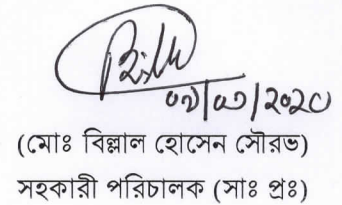 ০৯/০৩/২০২০
(মোঃ বিল্লাল হোসেন সৌরভ)
সহকারী পরিচালক (সাঃ প্রঃ)